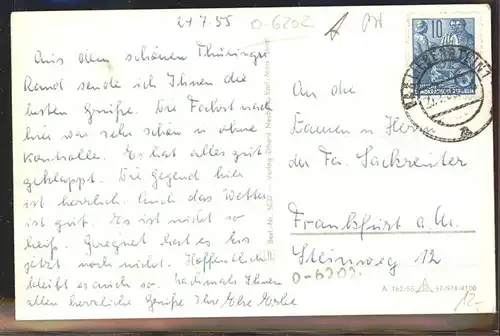 24.7.55
0-6202
Aus dem schönen Thüringer
Land sende ich Ihnen die
besten Grüße. Die Fahrt nach
hier war sehr schön u. ohne
Kontrolle. Es hat alles gut
geklappt. Die Gegend hier
ist herrlich. Auch das Wetter
ist gut. Es ist nicht so
heiß. Geregnet hat es bis
jetzt noch nicht. Hoffentlich
bleibt es auch so. Nochmals Ihnen
allen herzliche Grüße Ihre
10
DEMOKRATISCHE REPUBLIK
An die
Damen u. Herren
der Fa. Sackreuter
Frankfurt a. M.
Steinweg 12
0-6202
A 462/55 57/974/4100
12.-